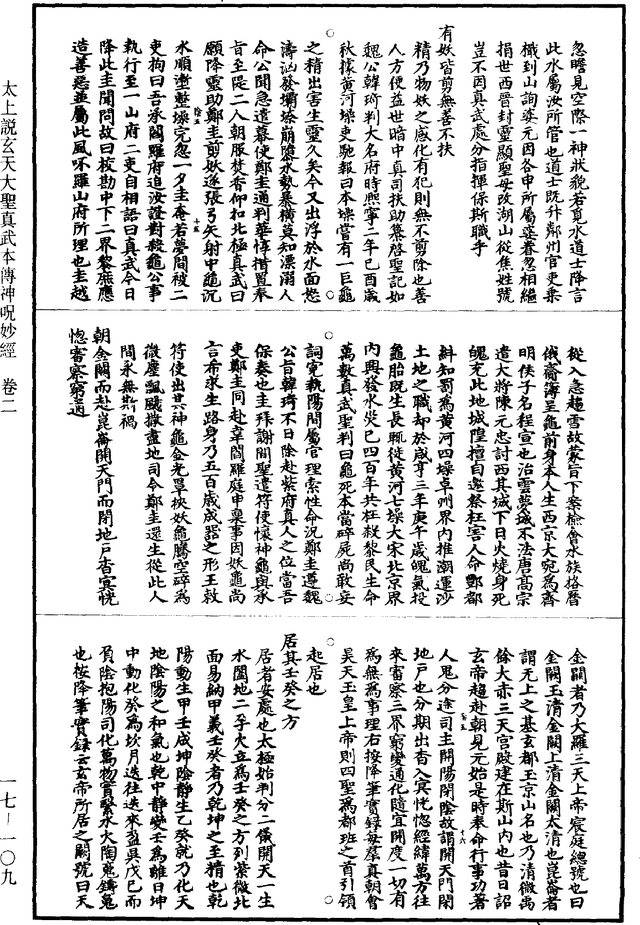 忽瞻見空際一神狀貌若覓水道士降言
此水屬汝所管也道士既升鄰州官吏乘
檝到山詢婆元因各申所屬婆眷忽相繼
捐世西晉封靈顯聖母改湖山從焦姓號
豈不因真武處分指揮保斯職乎
有妖皆剪無善不扶
精乃物妖之感化有犯則無不剪除也善
人方便益世暗中真司扶助纂啓聖記如
魏公韓琦判大名府時熙寧二年己酉歲
秋據黃河埽吏馳報曰本埽嘗有一巨龜
之精出害生靈久矣今又出浮於水面悠
濤汹發壩埽崩隳水勢暴橫莫知漂溺人
命公聞急遣幕使鄭圭通判華惇措置奉
旨至隄二人朝服焚香仰扣北極真武曰
願降靈助鄭圭剪妖逐張弓矢射中龜沉
水順塗整埽完忽一夕圭庵若夢間被二
吏拘曰吾承閻羅府追汝證對殺龜公事
執行至一山府二吏自相語曰真武今日
降此圭聞問故曰校勘中下二界黎庶應
造善惡並屬此風吠羅山府所理也圭越
從入急趨雪故蒙旨下案檢會水族格曆
俄齎簿呈龜前身本人生西京大宛爲齊
明侯子名程宣也治雲夢城不法唐高宗
遣大將陳元忠討西其城下日火燒身死
魄充此地城隍擅自邀祭枉害人命酆都
糾知罰爲黃河四埽卓州界內推潮運沙
土地之職却於咸亨三年庚午歲魄氣投
龜胎既生長輒徙黃河七埽大宋北京界
內興發水災已四百年共枉殺黎民生命
萬數真武聖判曰龜死本當碎屍尚敢妄
詞寃執陽間屬官理索性命況鄭圭遵魏
公旨韓琦不日除赴紫府真人之位當吾
保奏也圭拜謝聞聖遣符使懷神龜與承
吏鄭圭同赴韋閻羅庭申稟事因妖龜尚
言希求生路身乃五百歲成器之形王敕
符使出其神龜金光罩挾妖龜騰空碎爲
微塵飄颺撒盡地司令鄭圭還生從此人
間永無斯禍
朝金闕而赴崑崙開天門而閉地戶杳冥恍
惚審察窮通
金闕者乃大羅三天上帝宸庭總號也曰
金闕玉清金闕上清金闕太清也崑崙者
謂無上之基玄都玉京山名也乃清微禹
餘大赤三天宮殿建在斯山內也昔日詔
玄帝趨赴朝見元始是時奉命行事功著
人鬼分途司主開陽閉陰故謂開天門閉
地戶也分期出杳入冥恍惚經緯萬方往
來審察三界窮變通化隨宜開度一切有
爲無爲事理右按降筆實錄每羣真朝會
昊天玉皇上帝則四聖爲都班之首引領
起居也
居其壬癸之方
居者安處也太極始判分二儀開天一生
水闔地二孚火立爲壬癸之方列紫微北
面易納甲義壬癸者乃乾坤之至精也乾
陽動生甲壬戌坤陰静生乙癸就乃化天
地陰陽之和氣也乾中静變壬爲離日坤
中動化癸爲坎月迭往迭來盈昃戊巳而
負陰抱陽司化萬物賓繫水火陶鬼鑄鬼
也按降筆實錄云玄帝所居之闕號曰天
太上說玄天大聖真武本傳神呪妙經 卷二
一七—一〇九